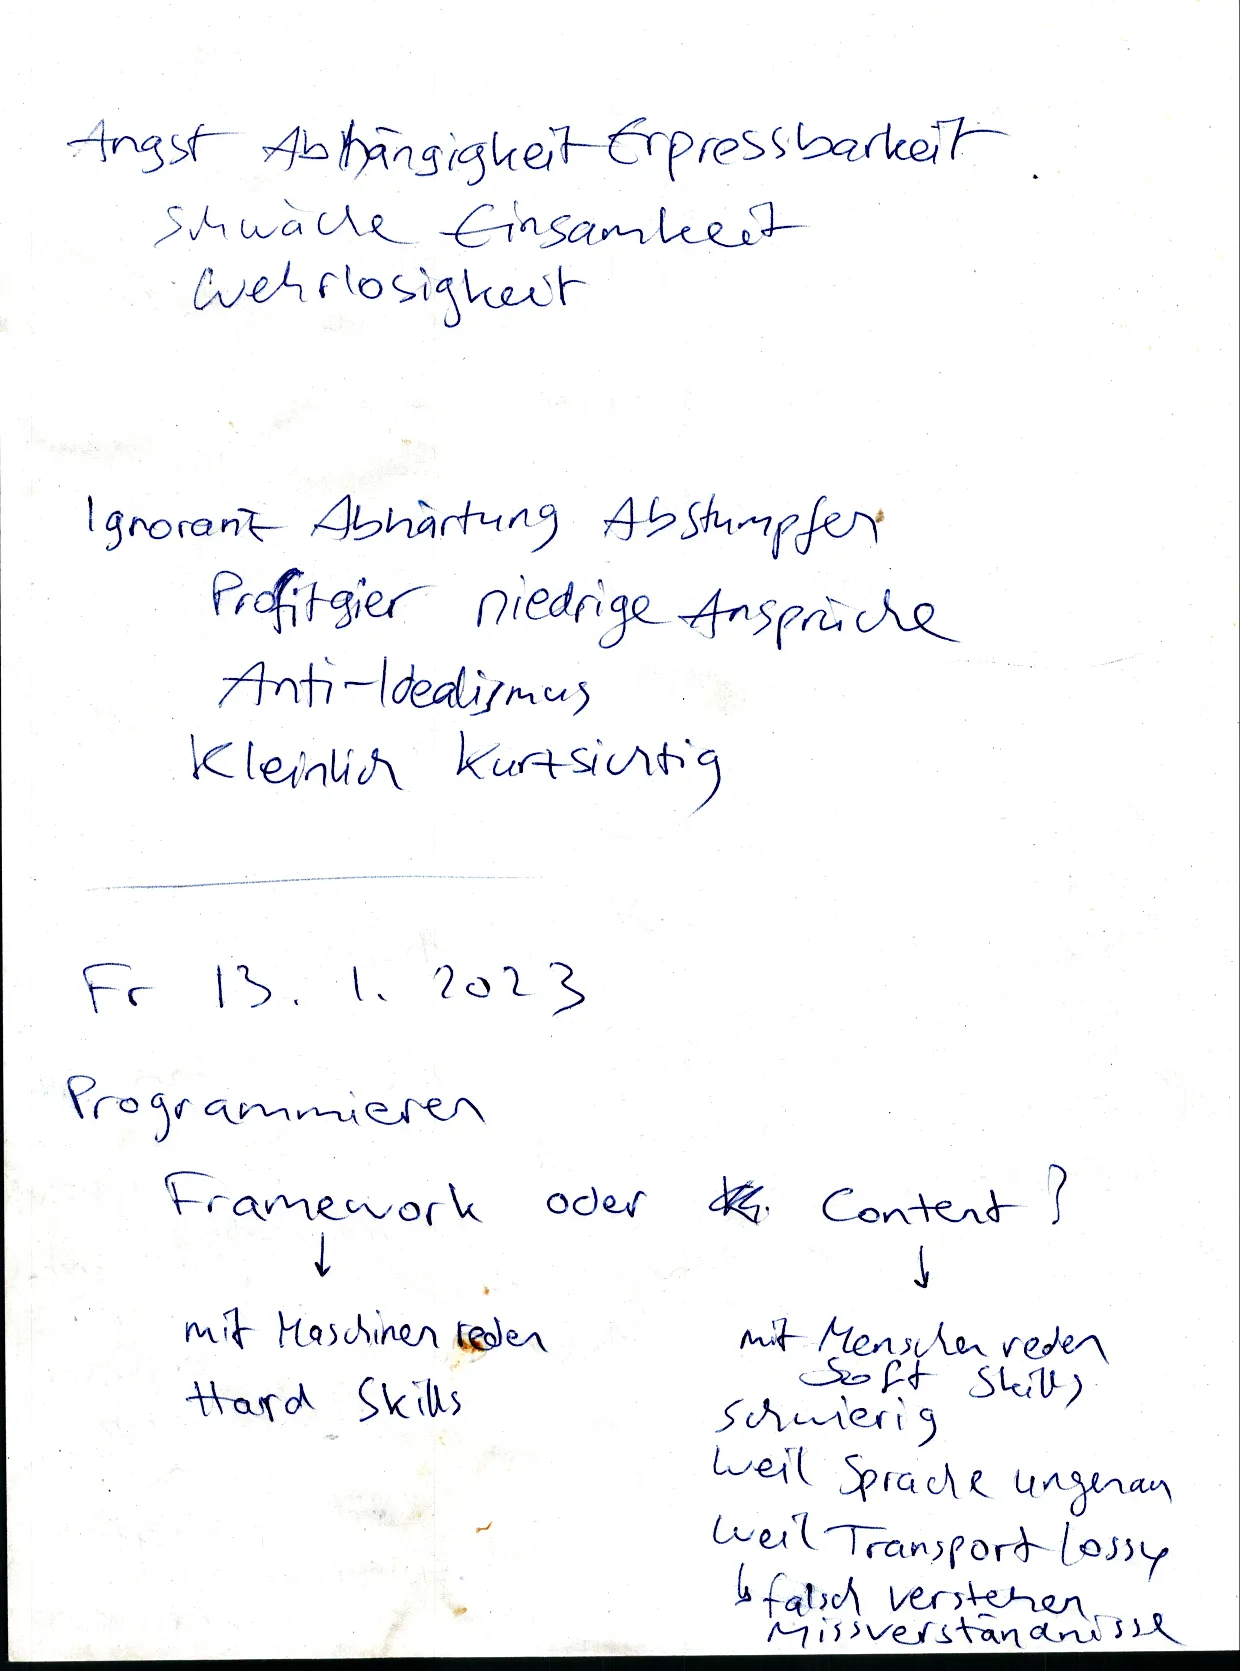 Angst Abhängigkeit Erpressbarkeit
Schwäche Einsamkeit
Wehrlosigkeit
Ignorant Abhärtung Abstumpfen
Profitgier niedrige Ansprüche
Anti-Idealismus
Kleinlich Kurzsichtig
Fr 13. 1. 2023
Programmieren
Framework oder Content?
↓ ↓
mit Maschinen reden mit Menschen reden
Hard Skills Soft Skills
schwierig
weil Sprache ungenau
weil Transport lossy
↳ falsch verstehen
Missverständnisse